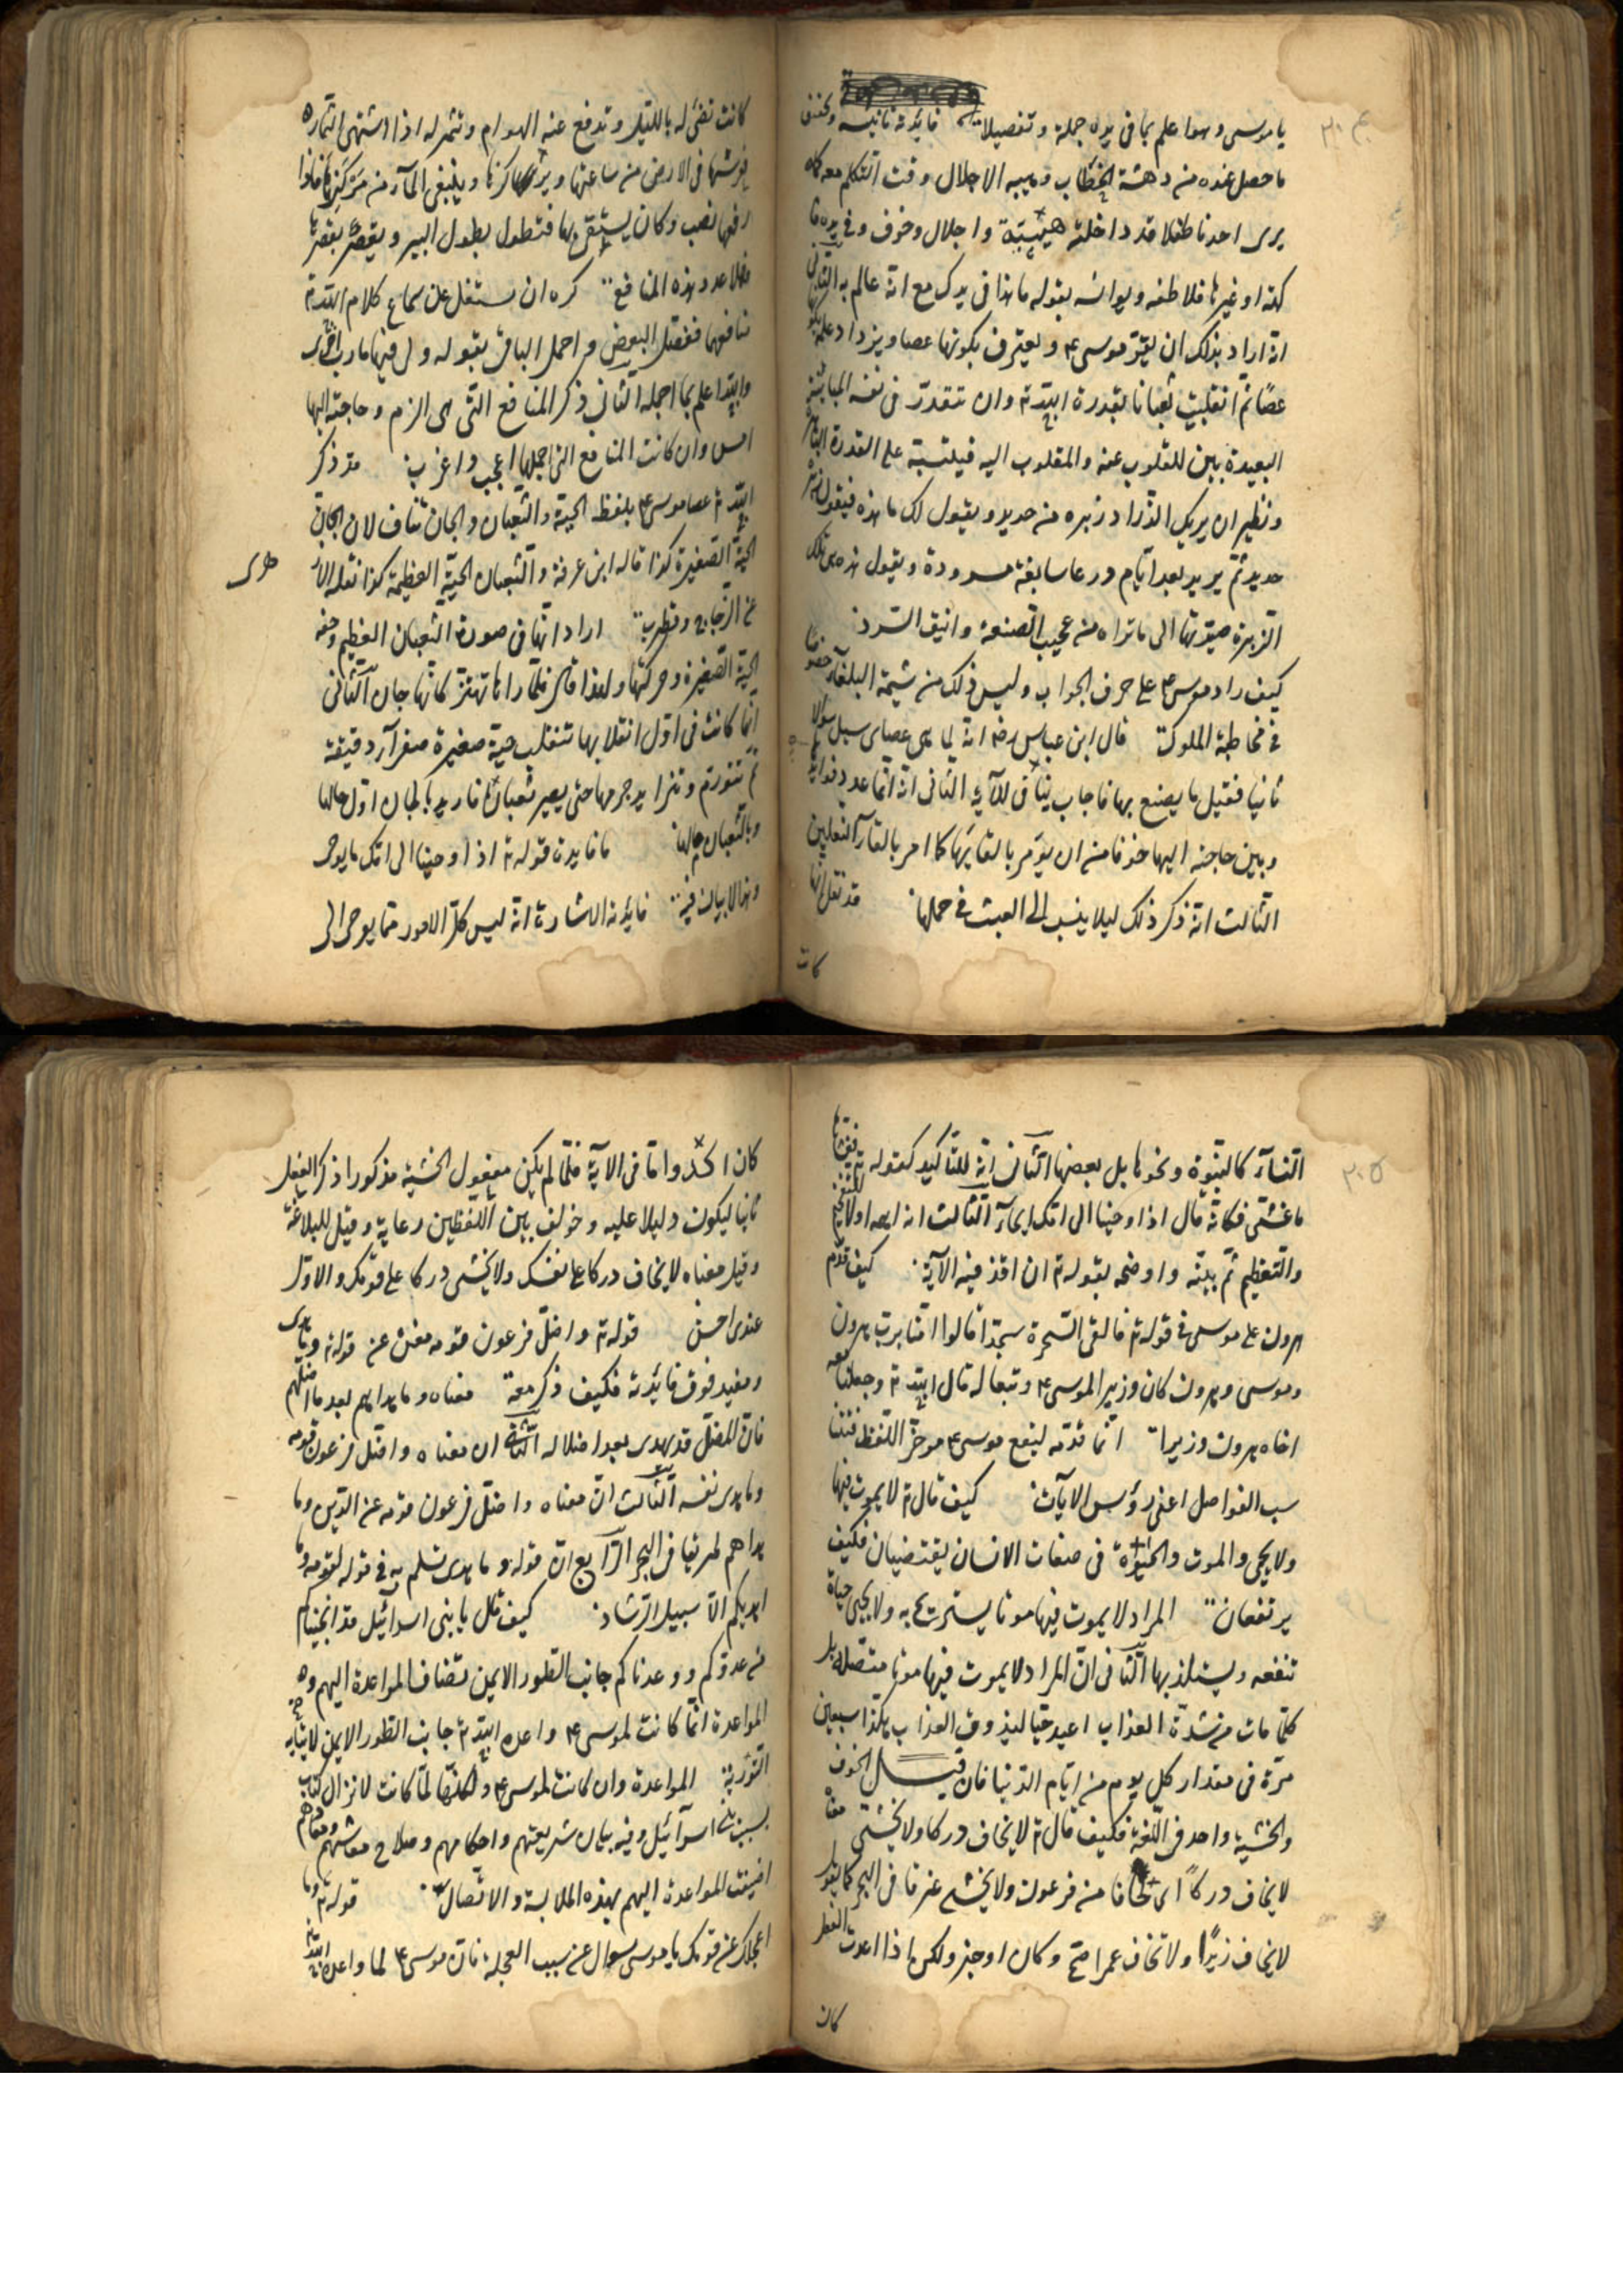 ٣٠٤
يا موسى وهو اعلم بما فى يده جملة وتفصيلا فائدته تأنيسه وتخفيف
ما حصل عنده من دهشة الخطاب وهيبه الاجلال وقت التكلم معه كما
يرى احدنا طفلا قد داخلته هيبة واجلال وخوف وفى يده فا
كهة او غيرها فلاطفه ويوانسه بقوله ما هذا فى يدك مع انه عالم به الثانى
انه اراد بذلك ان يقرّ موسى ع ويعترف بكونها عصا ويزداد علمه بكونها
عصًا ثم انقلبت ثعبانا بقدرة الله تع وان تتقرر فى نفسه المباينة
البعيدة بين المقلوب عنه والمقلوب اليه فيتنبه على القدرة الباهرة
ونظيره ان يريك الزراد زبره من حديد ويقول لك ما هذه فيقول زبره
حديد ثم يريد بعد ايام درعا سابغة مسرودة ويقول هذه هى تلك
الزبرة صيرتها الى ما تراه من عجيب الصنعة وانيق السرد
كيف زاد موسى ع على حرف الجواب وليس ذلك من شيمة البلغاء خصوصا
فى مخاطبة الملوك قال ابن عباس رض انه لما قال هى عصاى سيل سؤالا
ثانيا فقيل ما يصنع بها فاجاب بباقى الاية الثانى انه انما عدد فوائدها
وبين حاجته اليها خوفا من ان يؤمر بالقائها كما امر بالقاء النعلين
الثالث انه ذكر ذلك ليلا ينسب الى العبث فى حملها قد نقل انها
كانت
كانت تضىء له بالليل وتدفع عنه الهوام وتثمر له اذا اشتهى الثماره
فرشتها فى الارض من ساعتها ويركزها وينبغى الماء من مركزها فاذا
رفعها نضب وكان يستقى بها فتطول بطول البير ويقصر بقصرها
فهلا عدد هذه المنافع كره ان يشتغل عن سماع كلام الله تع
منافعها ففصل البعض واجمل الباقى بقوله ولى فيها مارب اخرى
والله اعلم بما اجمله الثانى ذكر المنافع التى هى الزم وحاجته اليها
امس وان كانت المنافع التى اجملها اعجب واغرب قد ذكر
الله تع عصا موسى ع بلفظ الحية والثعبان والجان تناف لان الجان
الحية الصغيرة كذا قاله ابن عرفة والثعبان الحية العظيمة كذا نقله الاز
هرى
عن الزجاج وقطرب اراد انها فى صورة الثعبان العظيم وخفة
الحية الصغيرة وحركتها ولهذا قال فلما راها تهتز كانها جان الثانى
انما كانت فى اول انقلابها تنقلب حية صغيرة صفراء دقيقة
ثم تتورم وتتزايد جرمها حتى يصير ثعبانا فاريد بالجان اول حالها
وبالثعبان مآلها ما فايدة قوله تع اذ اوحينا الى امك ما يوحى
وهذا لا بيان فيه فايدته الاشارة انه ليس كل الامور مما يوحى الى
٣٠٥
النساء كالنبوة ونحوها بل بعضها الثانى انه للتاكيد كقوله تع فغشاها
ما غشى فكانه قال اذ اوحينا الى امك ايحاء الثالث انه ابهمه اولا للتفخيم
والتعظيم ثم بينه واوضحه بقوله تع ان اقذفيه الآية كيف قدم
هرون على موسى فى قوله تع فالقى السحرة سجدا قالوا امنا برب هرون
وموسى وهرون كان وزيرا لموسى ع وتبعا له قال الله تع وجعلنا معه
اخاه هرون وزيرا انما قدمه ليقع موسى ع مؤخر اللفظ فتتنا
سب الفواصل اعنى رؤس الآيات كيف قال تع لا يموت فيها
ولا يحيى والموت والحيوة فى صفات الانسان يقتضيان فكيف
يرتفعان المراد لا يموت فيها موتا يستريح به ولا يحيى حياة
تنفعه ويستلذ بها الثانى ان المراد لا يموت فيها موتا متصلا بل
كلما مات من شدة العذاب اعيد حيا ليذوق العذاب هكذا سبعين
مرة فى مقدار كل يوم من ايام الدنيا فان قيل الخوف
والخشية واحد فى اللغة فكيف قال تع لا يخاف دركا ولا يخشى معناه
لا يخاف دركًا اى لحاقا من فرعون ولا يخشى غرقا فى البحر كما يقول
لا يخاف زيدًا ولا تخاف عمرا صح وكان اوجز ولكن اذا اعدت الفعل
كان
كان اكد واما فى الآية فلما لم يكن مفعول الخشية مذكورا ذكر الفعل
ثانيا ليكون دليلا عليه وخولف بين اللفظين رعاية وقيل للبلاغة
وقيل معناه لا يخاف دركا على نفسك ولا يخشى دركا على قومك والاول
عندى احسن قوله تع واضل فرعون قومه مغن عن قوله وما هدى
ومفيد فوق فائدته فكيف ذكر معه معناه وما هداهم بعد ما اضلهم
فان المضل قد يهدى بعد اضلاله الثانى ان معناه واضل فرعون قومه
وما هدى نفسه الثالث ان معناه واضل فرعون قومه عن الدين وما
هداهم طريقا فى البحر الرابع ان قوله وما هدى تهكم به فى قوله لقومه وما
اهديكم الا سبيل الرشاد كيف قال يا بنى اسرائيل قد انجيناكم
من عدوكم ووعدناكم جانب الطور الايمن يضاف المواعدة اليهم وهذه
المواعدة انما كانت لموسى ع واعده الله تع جانب الطور الايمن لايتائه
التورية المواعدة وان كانت لموسى ع ولكنها لما كانت لانزال كتاب
بسبب بنى اسرآئيل وفيه بيان شريعتهم واحكامهم وصلاح معاشهم ومعادهم
اضيفت المواعدة اليهم بهذه الملابسة والاتصال قوله تع وما
اعجلك عن قومك يا موسى سوال عن سبب العجلة فان موسى ع لما واعده الله تع